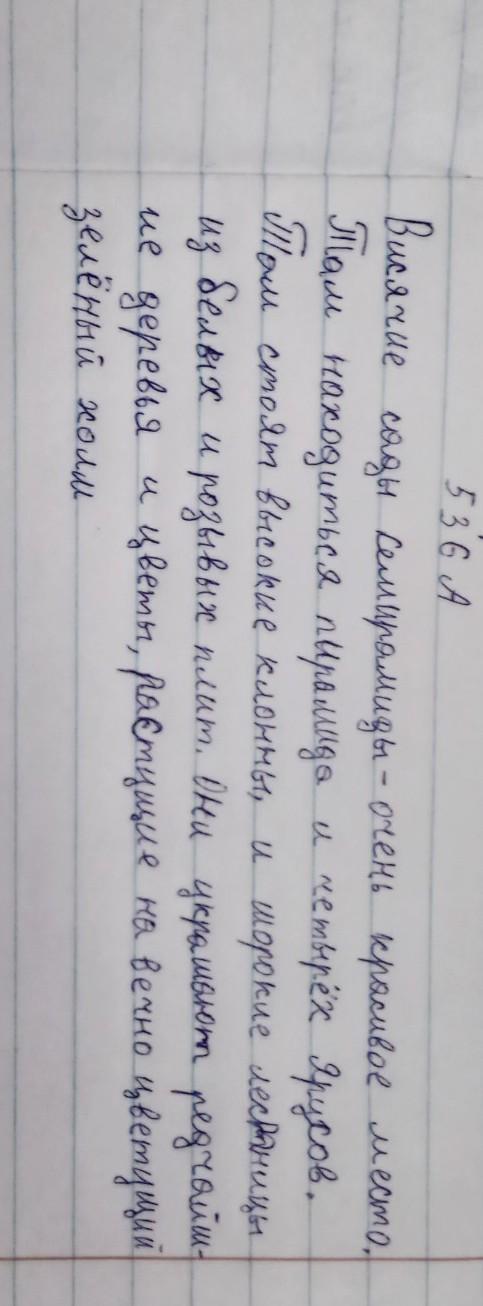 536А
Висячие сады Семирамиды - очень красивое место.
Там находиться пирамида и четырёх Ярусов.
Там стоят высокие клонны, и шорокие лестницы
из белых и розывых плит. Они украшают редчайш-
ие деревья и цветы, растущие на вечно цветущий
зелёный холм